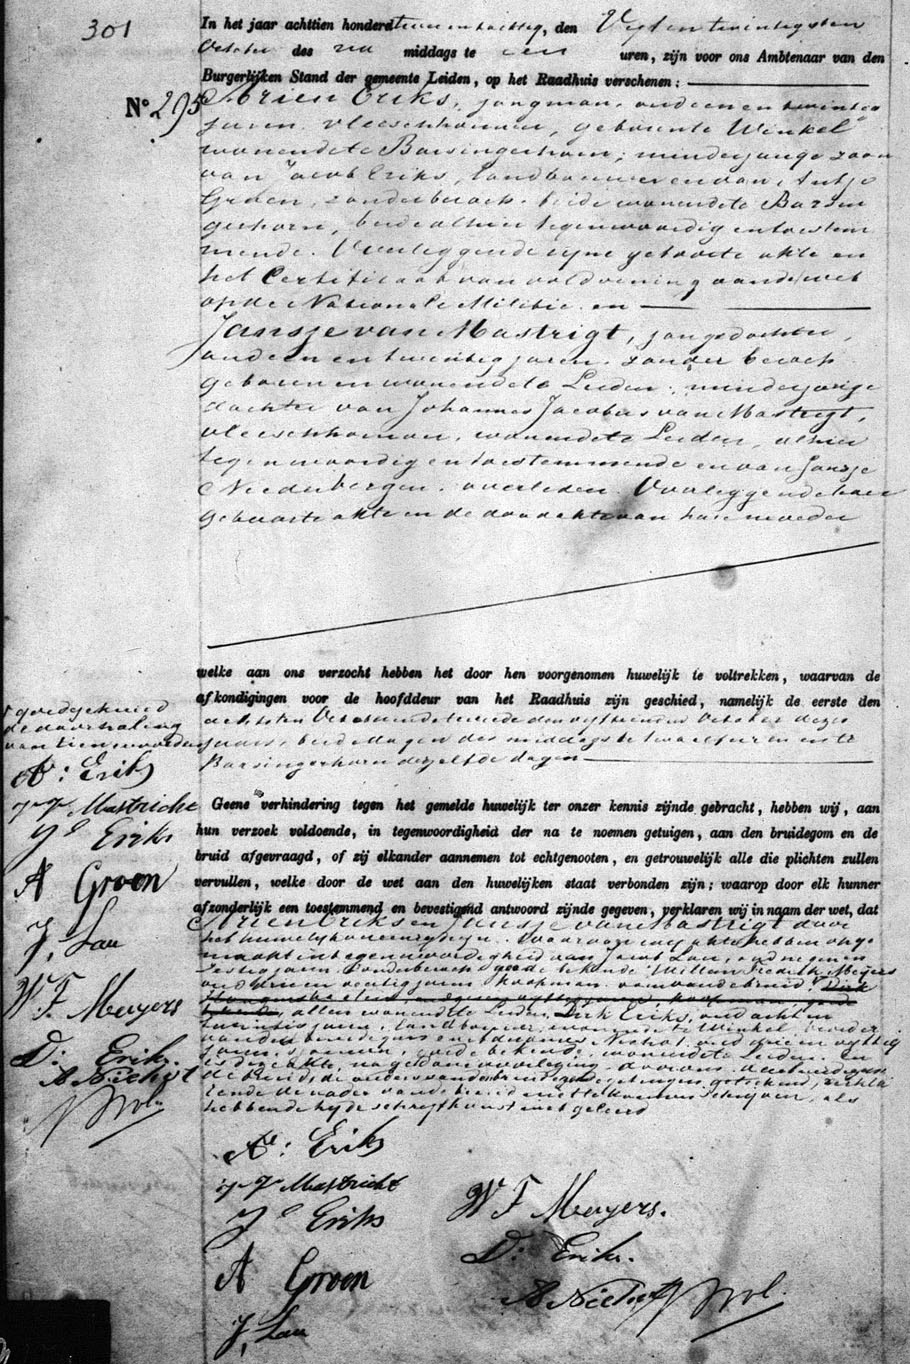 301
In het jaar achttien honderd twee en tachtig, den Vijf en twintigsten
October des na middags te een uren, zijn voor ons Ambtenaar van den
Burgerlijken Stand der gemeente Leiden, op het Raadhuis verschenen:
No 295
Arien Eriks, jongman, oud een en twintig
jaren, vleeschhouwer, geboren te Winkel
wonende te Barsingerhorn; minderjarige zoon
van Jacob Eriks, landbouwer en van Antje
Groen, zonder beroep, beide wonende te Barsin
gerhorn, beide alhier tegenwoordig en toestem
mende. Overleggende zijne geboorte akte en
het Certificaat van voldoening aan de wet
op de Nationale Militie. en
Jansje van Mastrigt, jongedochter,
oud een en twintig jaren, zonder beroep
geboren en wonende te Leiden, minderjarige
dochter van Johannes Jacobus van Mastrigt,
vleeschhouwer, wonende te Leiden, alhier
tegenwoordig en toestemmende en van Jansje
Niedenbergen, overleden. Overleggende haar
geboorte akte en de doodakte van hare moeder
welke aan ons verzocht hebben het door hen voorgenomen huwelijk te voltrekken, waarvan de
afkondigingen voor de hoofddeur van het Raadhuis zijn geschied, namelijk de eerste den
achtsten October en de tweede den vijftienden October dezes
jaars, beide Zondagen des middags te twaalf uren en te
Barsingerhorn dezelfde dagen
goedgekeurd
de doorhaling
van tien woorden
As: Eriks
J J Mastricht
Js Eriks
A Groen
J. Lau
W F Meyers
D: Eriks.
A Nichot
Geene verhindering tegen het gemelde huwelijk ter onzer kennis zijnde gebracht, hebben wij, aan
hun verzoek voldoende, in tegenwoordigheid der na te noemen getuigen, aan den bruidegom en de
bruid afgevraagd, of zij elkander aannemen tot echtgenooten, en getrouwelijk alle die plichten zullen
vervullen, welke door de wet aan den huwelijken staat verbonden zijn; waarop door elk hunner
afzonderlijk een toestemmend en bevestigend antwoord zijnde gegeven, verklaren wij in naam der wet, dat
Arien Eriks en Jansje van Mastrigt door
het huwelijk vereenigd zijn. Waarvan wij akte hebben opge
maakt in tegenwoordigheid van Jacob Lau, oud negen en
zestig jaren, zonder beroep, goede bekende, Willem Frederik Meijers
oud drie en veertig jaren koopman, oom van de bruid,
allen wonende te Leiden, Dirk Eriks, oud acht en
twintig jaren, landbouwer, wonende te Winkel, broeder
van den bruidegom en Nichot, oud drie en vijftig
jaren, goede bekende, wonende te Leiden. en
is deze akte, na gedane voorlezing door ons
de bruid, de ouders van den bruidegom en getuigen geteekend, verkla
rende de vader van de bruid niet te kunnen schrijven, als
hebbende hij de schrijfkunst niet geleerd
As: Eriks
J J Mastricht
Js Eriks
A Groen
J. Lau
W F Meyers.
D: Eriks.
A Nichot